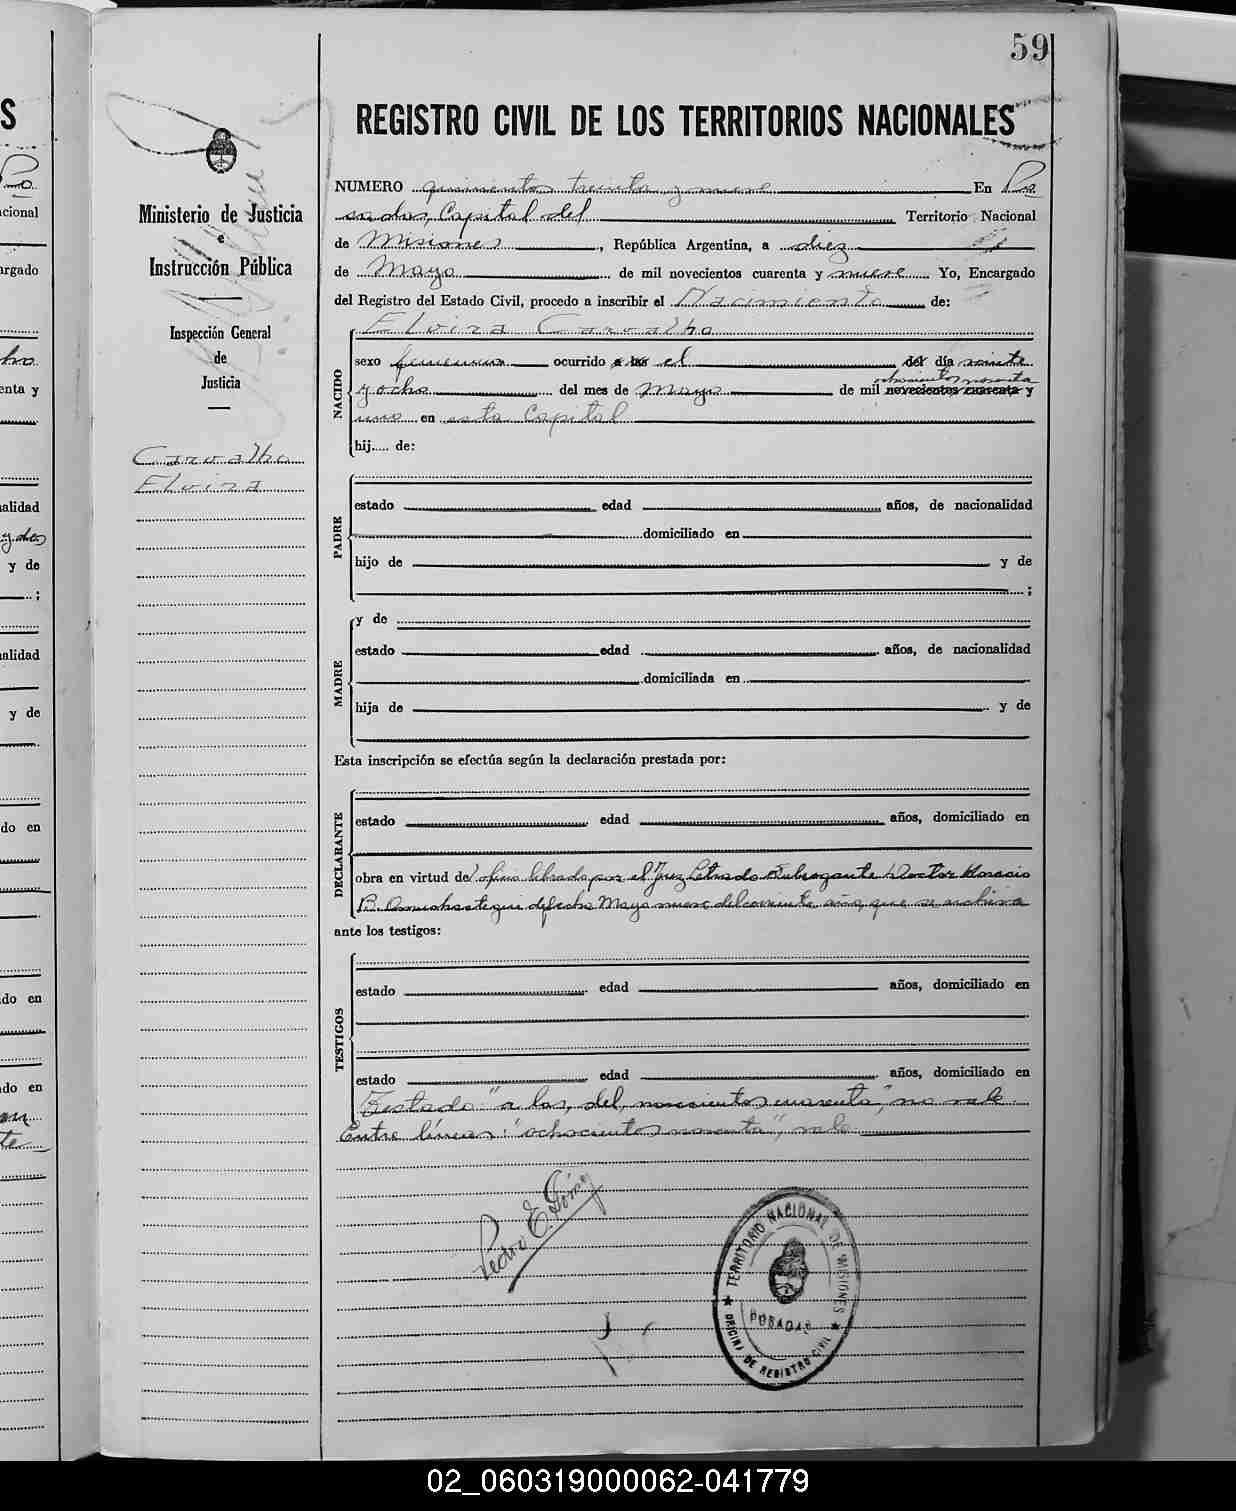 59
REGISTRO CIVIL DE LOS TERRITORIOS NACIONALES
Ministerio de Justicia
e
Instrucción Pública
Inspección General
de
Justicia
Carvalho
Elvira
NUMERO quinientos treinta y nueve En Po
sadas, Capital del Territorio Nacional
de Misiones, República Argentina, a diez
de Mayo de mil novecientos cuarenta y nueve Yo, Encargado
del Registro del Estado Civil, procedo a inscribir el Nacimiento de:
Elvira Carvalho
NACIDO
sexo femenino ocurrido a las el del día veinte
ochocientos noventa
y ocho del mes de Mayo de mil novecientos cuarenta y
uno en esta Capital
hij..... de:
PADRE
estado edad años, de nacionalidad
domiciliado en
hijo de y de
;
MADRE
y de
estado edad años, de nacionalidad
domiciliada en
hija de y de
Esta inscripción se efectúa según la declaración prestada por:
DECLARANTE
estado edad años, domiciliado en
obra en virtud del oficio librado por el Juez Letrado Subrogante Doctor Horacio
B. de fecha Mayo nueve del corriente año, que se archiva
ante los testigos:
TESTIGOS
estado edad años, domiciliado en
estado edad años, domiciliado en
Testado "a las, del, novecientos cuarenta", no vale
Entre líneas: "ochocientos noventa", vale
Pedro E. Gómez
TERRITORIO NACIONAL DE MISIONES
POSADAS
OFICINA DE REGISTRO CIVIL
S
Po
cional
argado
lho
enta y
alidad
y dos
y de
;
alidad
y de
do en
do en
do en
te
02_060319000062-041779